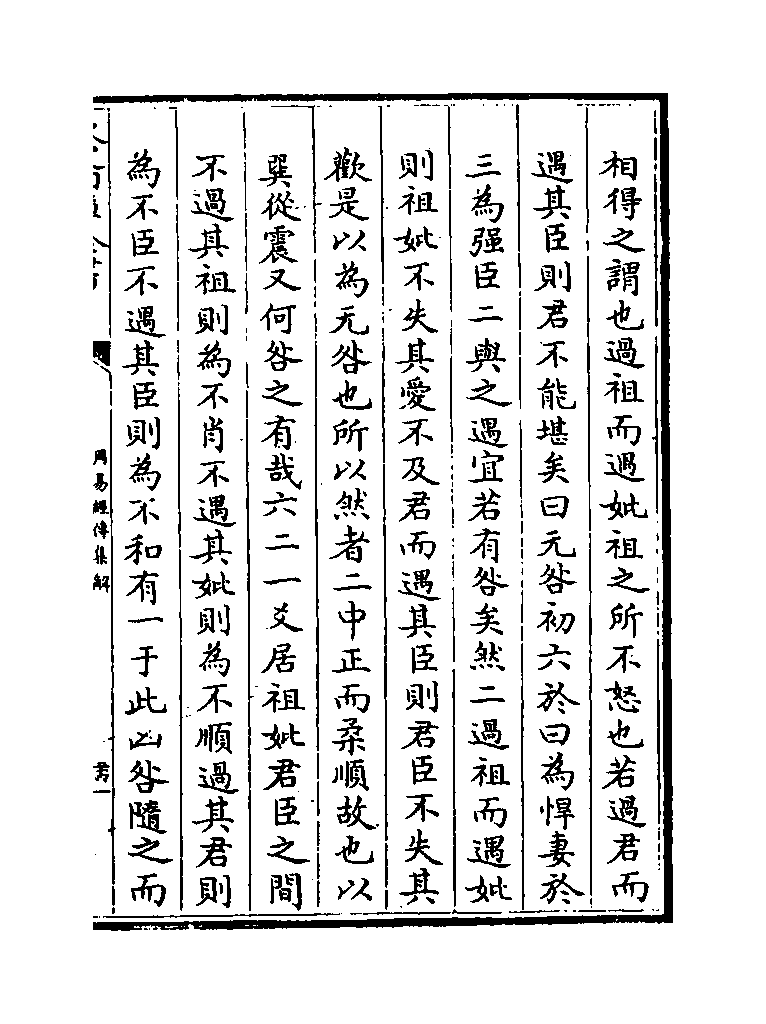 相得之謂也過祖而遇妣祖之所不怒也若過君而
遇其臣則君不能堪矣曰无咎初六於曰為悍妻於
三為强臣二與之遇宜若有咎矣然二過祖而遇妣
則祖妣不失其愛不及君而遇其臣則君臣不失其
歡是以為无咎也所以然者二中正而柔順故也以
巽從震又何咎之有哉六二一爻居祖妣君臣之間
不過其祖則為不肖不遇其妣則為不順過其君則
為不臣不遇其臣則為不和有一于此凶咎隨之而
周易經傳集解